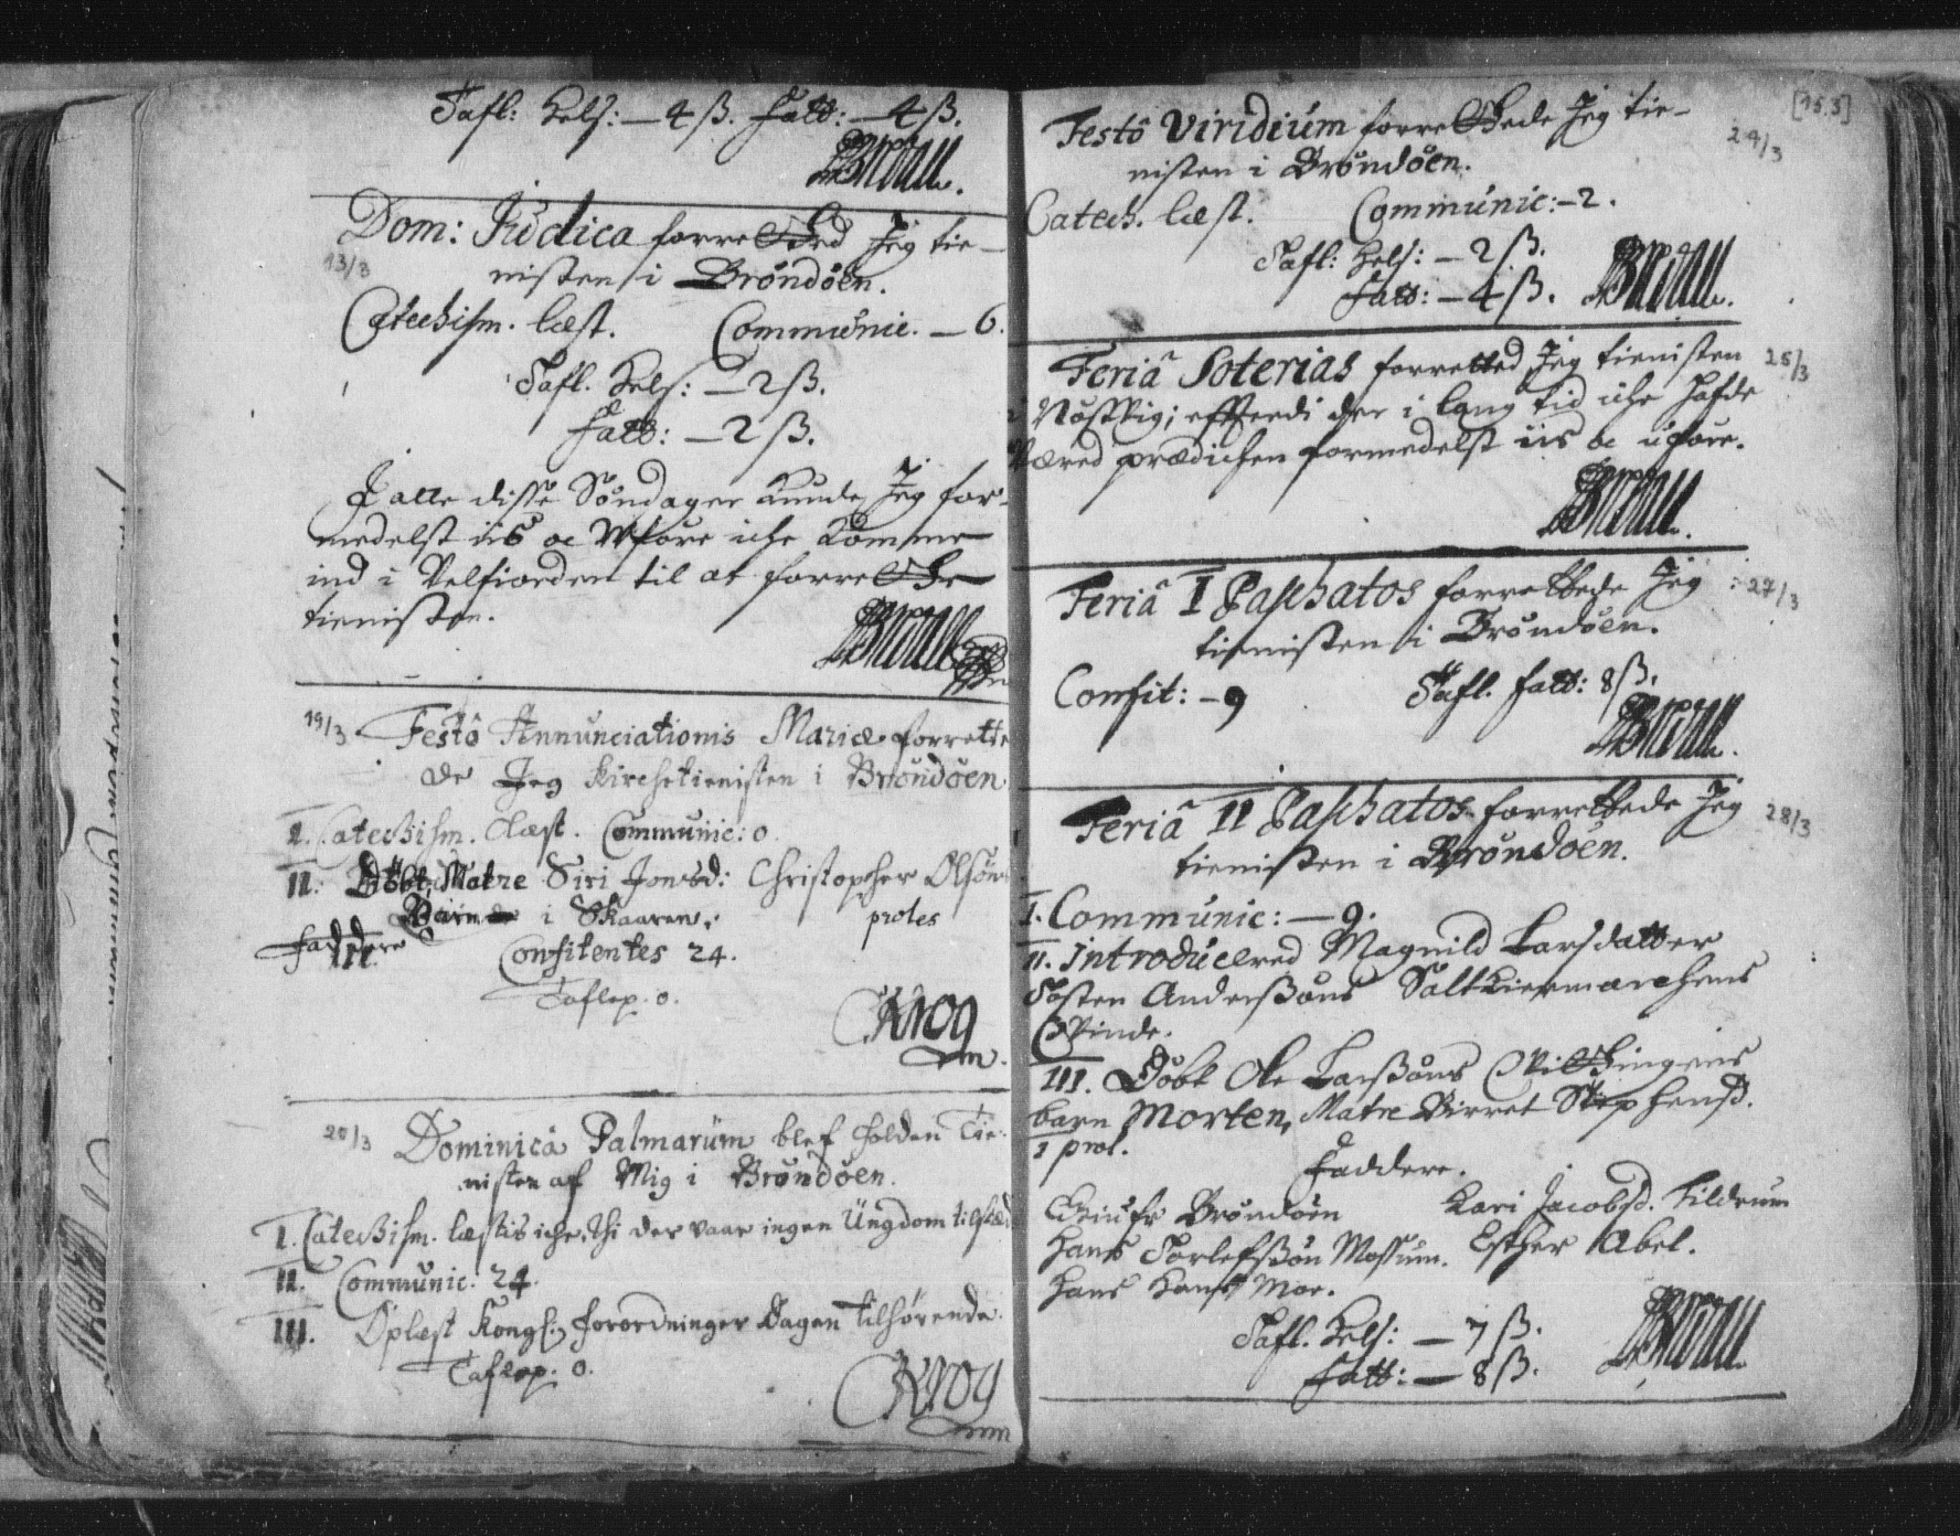 Tafl: Hels: — 4 ß. Fatt: — 4 ß.
Dom: Judica forretted Jeg tie-
13/3
nisten i Brøndøen.
Catechism. læst. Communic. — 6.
Tafl. Hels: — 2 ß.
Fatt: — 2 ß.
I alle disse Søndager kunde Jeg for-
medelst iis oc Wføre iche komme
ind i Velfiorden til at forrette
tienisten.
19/3 Festô Annunciationis Mariæ forrette
de Jeg Kirchetienisten i Brøndøen
I. Catechism. læst. Communic: 0.
II. Døbt, Matre Siri Jonsd: Christopher Olsøns
Barn i Skaaren. proles
Faddere
III. Confitentes 24.
Taflep. 0.
Krog
20/3 Dominicâ Palmarum blef holden Tie-
nisten af Mig i Brøndøen.
I. Catechism. læstis iche, thi der vaar ingen Ungdom tilstæd
II. Communic: 24.
III. Oplæst Kongl: Forordninger Dagen tilhørende.
Taflep. 0.
Krog
[153]
Festô Viridium forrettede Jeg tie-
24/3
nisten i Brøndøen.
Catech. læst. Communic: — 2.
Tafl: Hels: — 2 ß.
Fatt: — 4 ß.
Feriâ Soterias forretted Jeg tienisten 25/3
i Nøstvig; efterdi der i lang tid iche hafde
Væred prædichen formedelst iis oc uføre.
Feriâ I Paschatos forrettede Jeg 27/3
tienisten i Brøndøen.
Confit: — 9 Tafl. Fatt: 8 ß.
Feriâ II Paschatos forrettede Jeg 28/3
tienisten i Brøndøen.
I. Communic: — 9.
II. Introducered Magnild Larsdatter
Tosten Anderßøns Saltkiermarchens
Qvinde.
III. Døbt Ole Larßøns
barn Morten, Matre Birret Stephensd.
1 prol.
Faddere.
Brøndøen Kari Jacobsd. Tildrum
Hans Torlefßøn Mossum. Esther Abel.
Hans Hansß Moe.
Tafl. Hels: — 7 ß.
Fatt: — 8 ß.